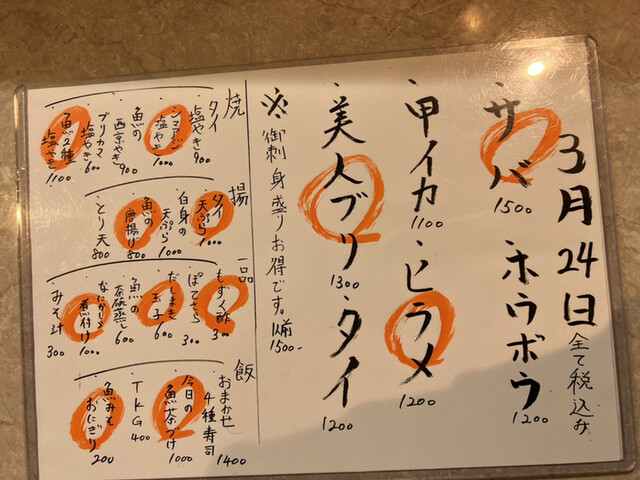 3月24日 全て税込み
・サバ 1500
・ホウボウ 1200
・甲イカ 1100
・ヒラメ 1200
・美人ブリ 1300
・タイ 1200
※御刺身盛りお得です。1人前 1500-
焼
・タイ塩やき 900
・シマアジ塩やき 1000
・魚の西京やき 900
・ブリカマ塩やき 600
・魚2種塩やき 1100
揚
・タイ天ぷら 1000
・白身の天ぷら 1000
・魚の唐揚げ 800
・とり天 800
一品
・もずく酢 300
・ぽてさら 300
・だしまき玉子 600
・魚の茶碗蒸し 600
・なにかしら煮付け 1000
・みそ汁 300
飯
・おまかせ4種寿司 1400
・今日の魚茶づけ 1000
・TKG 400
・魚みそおにぎり 200